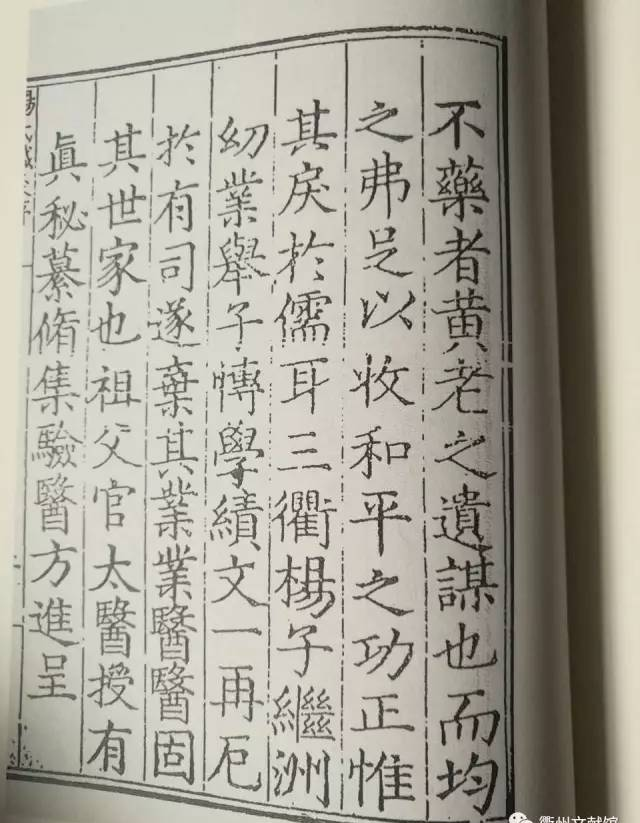 不藥者黃老之遺謀也而均
之弗足以收和平之功正惟
其戾於儒耳三衢楊子繼洲
幼業舉子慱學績文一再厄
於有司遂棄其業業醫醫固
其世家也祖父官太醫授有
眞秘纂脩集驗醫方進呈
衢州文献馆